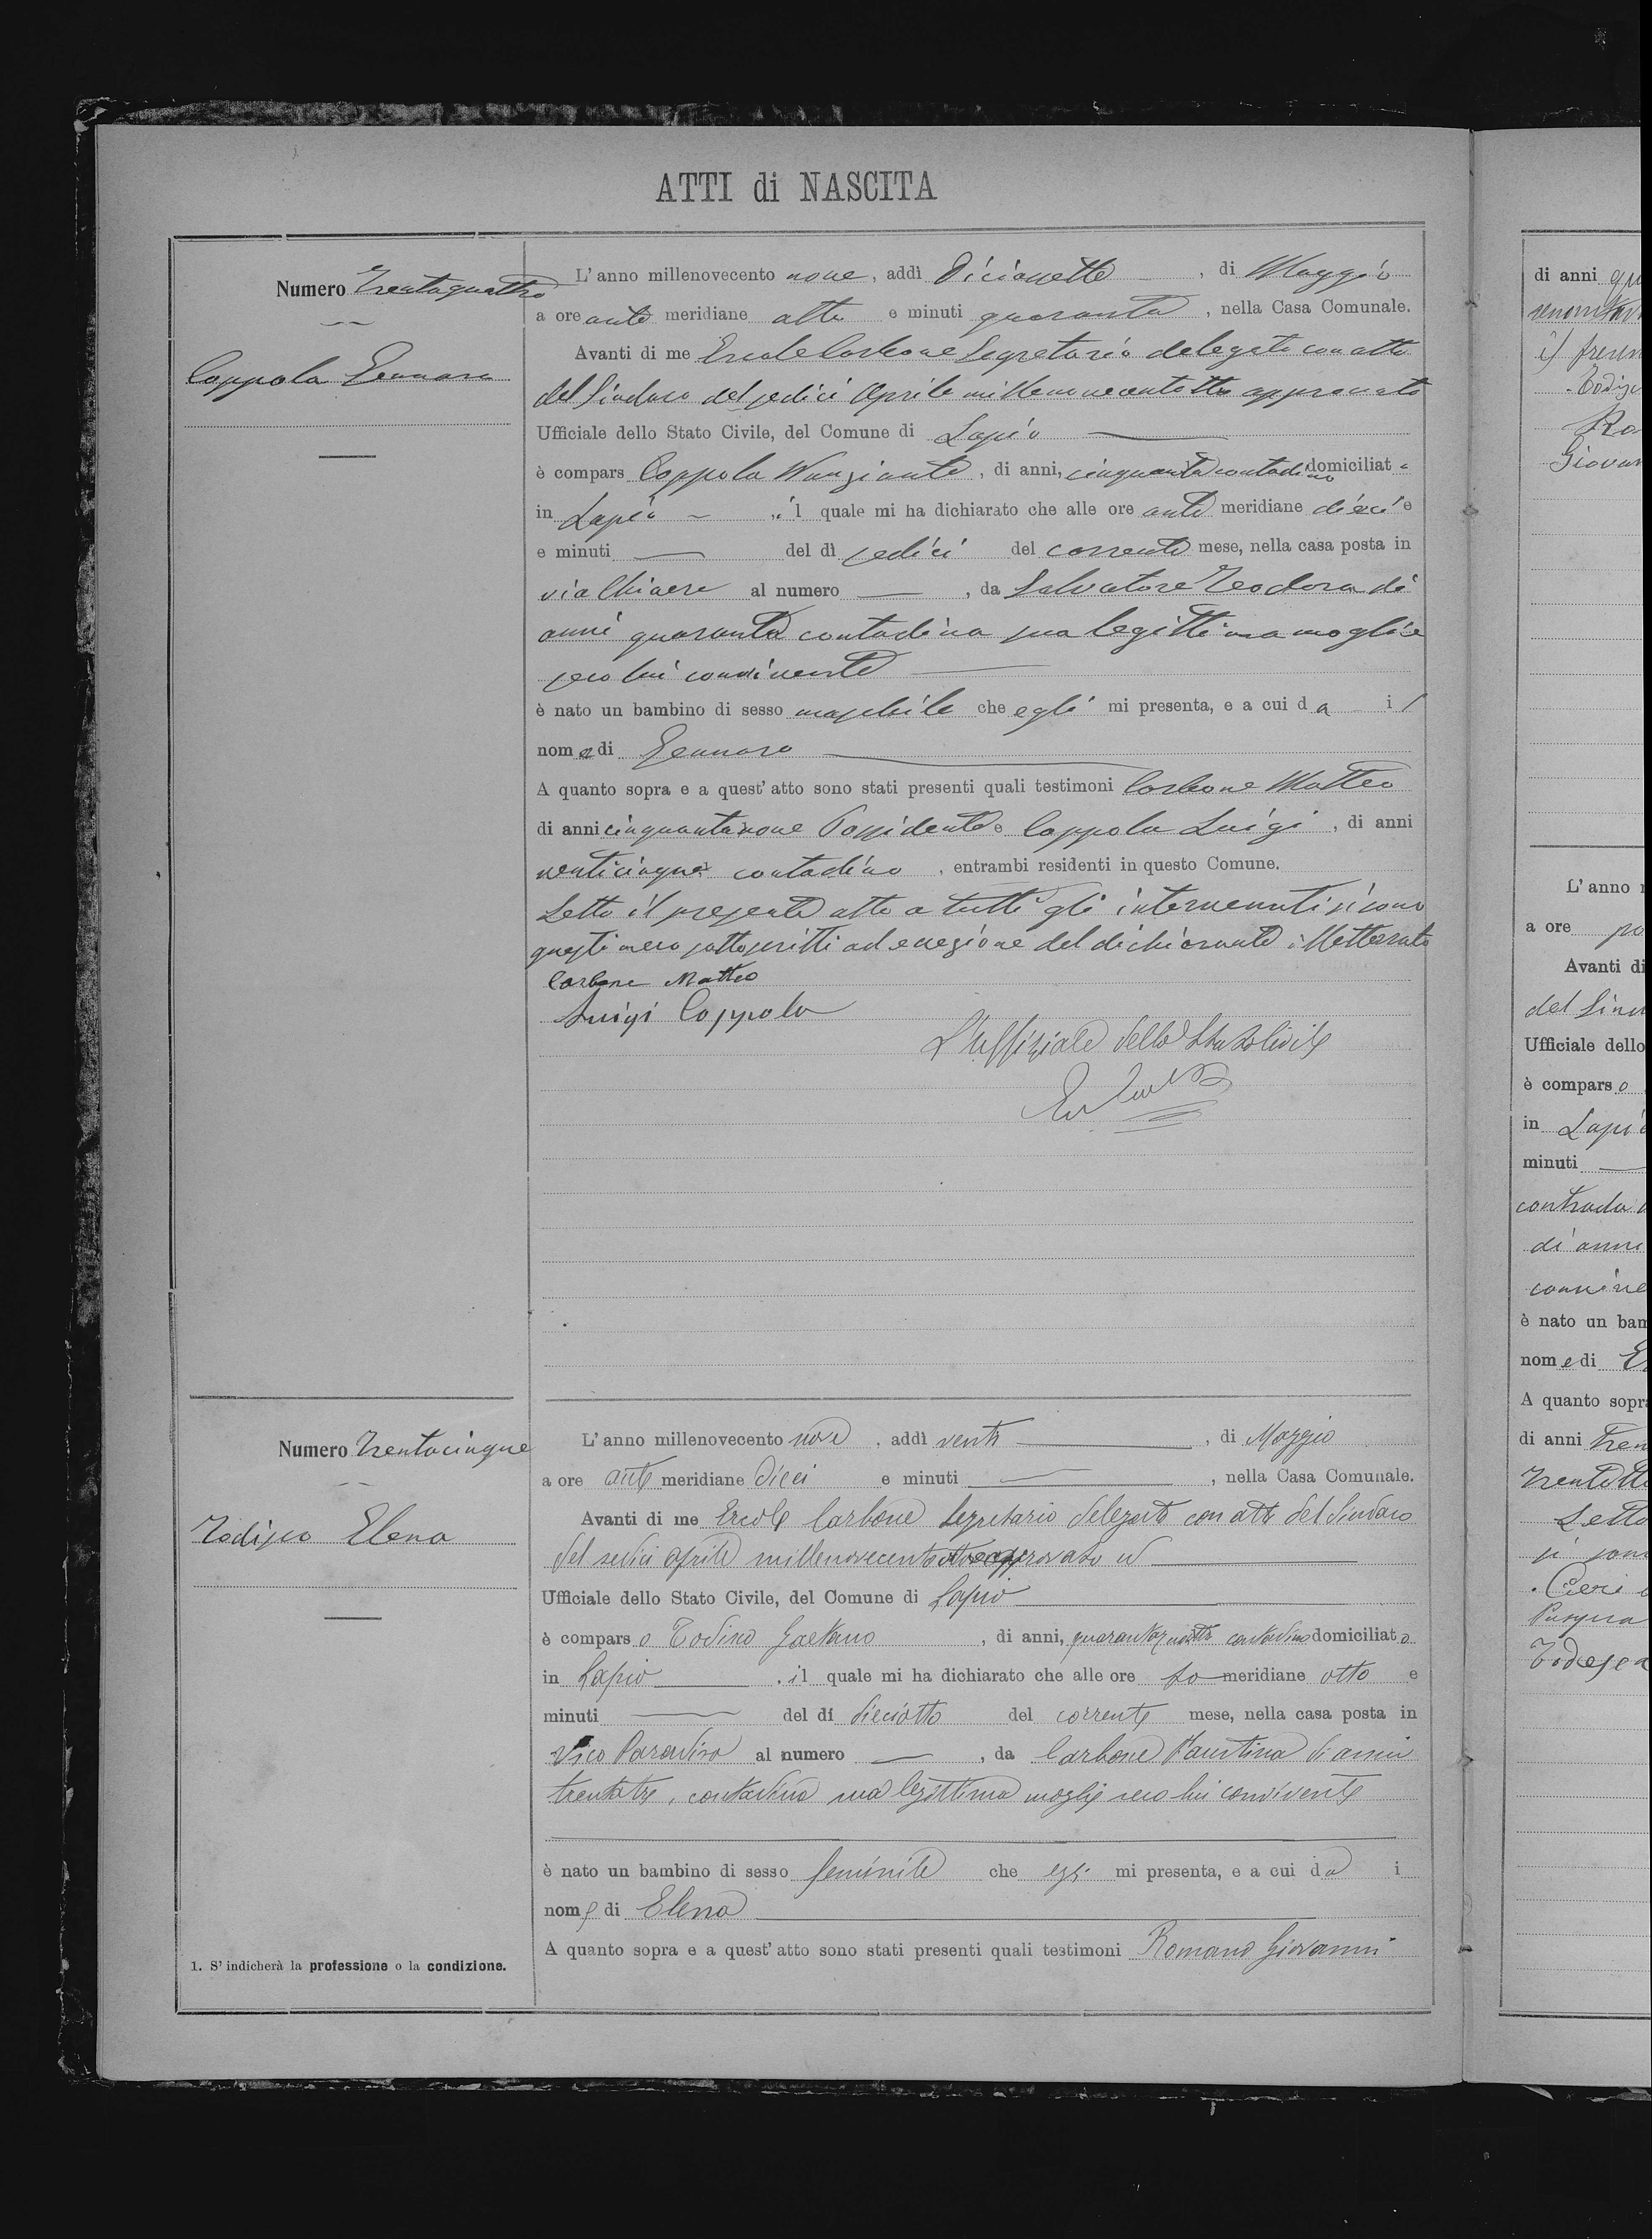 ATTI di NASCITA
Numero Trentaquattro
Coppola Gennaro
L'anno millenovecento nove, addì Diciassette, di Maggio
a ore anti meridiane otto e minuti quaranta, nella Casa Comunale.
Avanti di me Ercole Carbone Segretario delegato con atto
del Sindaco del sedici Aprile millenovecentotto approvato
Ufficiale dello Stato Civile, del Comune di Lapio
è compars Coppola Nunziante, di anni, cinquanta contadino domiciliato
in Lapio il quale mi ha dichiarato che alle ore anti meridiane dieci e
e minuti del dì sedici del corrente mese, nella casa posta in
via al numero , da Salvatore Teodora di
anni quaranta contadina sua legittima moglie
seco lui convivente
è nato un bambino di sesso maschile che egli mi presenta, e a cui da il
nome di Gennaro
A quanto sopra e a quest' atto sono stati presenti quali testimoni Carbone Matteo
di anni cinquantanove Possidente e Coppola Luigi, di anni
venticinque contadino, entrambi residenti in questo Comune.
Letto il presente atto a tutti gli intervenuti si sono
questi meco sottoscritti ad eccezione del dichiarante illetterato
Carbone Matteo
Luigi Coppola
L'Uffiziale dello Stato Civile
Numero Trentacinque
Todisco Elena
L'anno millenovecento nove, addì venti, di Maggio
a ore anti meridiane dieci e minuti , nella Casa Comunale.
Avanti di me Ercole Carbone Segretario delegato con atto del Sindaco
del sedici aprile millenovecentotto approvato
Ufficiale dello Stato Civile, del Comune di Lapio
è comparso Todisco Gaetano, di anni, contadino domiciliato
in Lapio . il quale mi ha dichiarato che alle ore po meridiane otto e
minuti del dì dieciotto del corrente mese, nella casa posta in
Vico Paradiso al numero , da Carbone Faustina di anni
trentatre, contadina sua legittima moglie seco lui convivente
è nato un bambino di sesso feminile che egli mi presenta, e a cui da i
nome di Elena
A quanto sopra e a quest' atto sono stati presenti quali testimoni Romano Giovanni
1. S' indicherà la professione o la condizione.
di anni qu
Giovan
L'anno
a ore po
Avanti di
del Sin
Ufficiale dello
è comparso
in Lapio
minuti
contrada
di anni
convive
è nato un bam
nome di
A quanto sopra
di anni Tren
trentotto
Letto